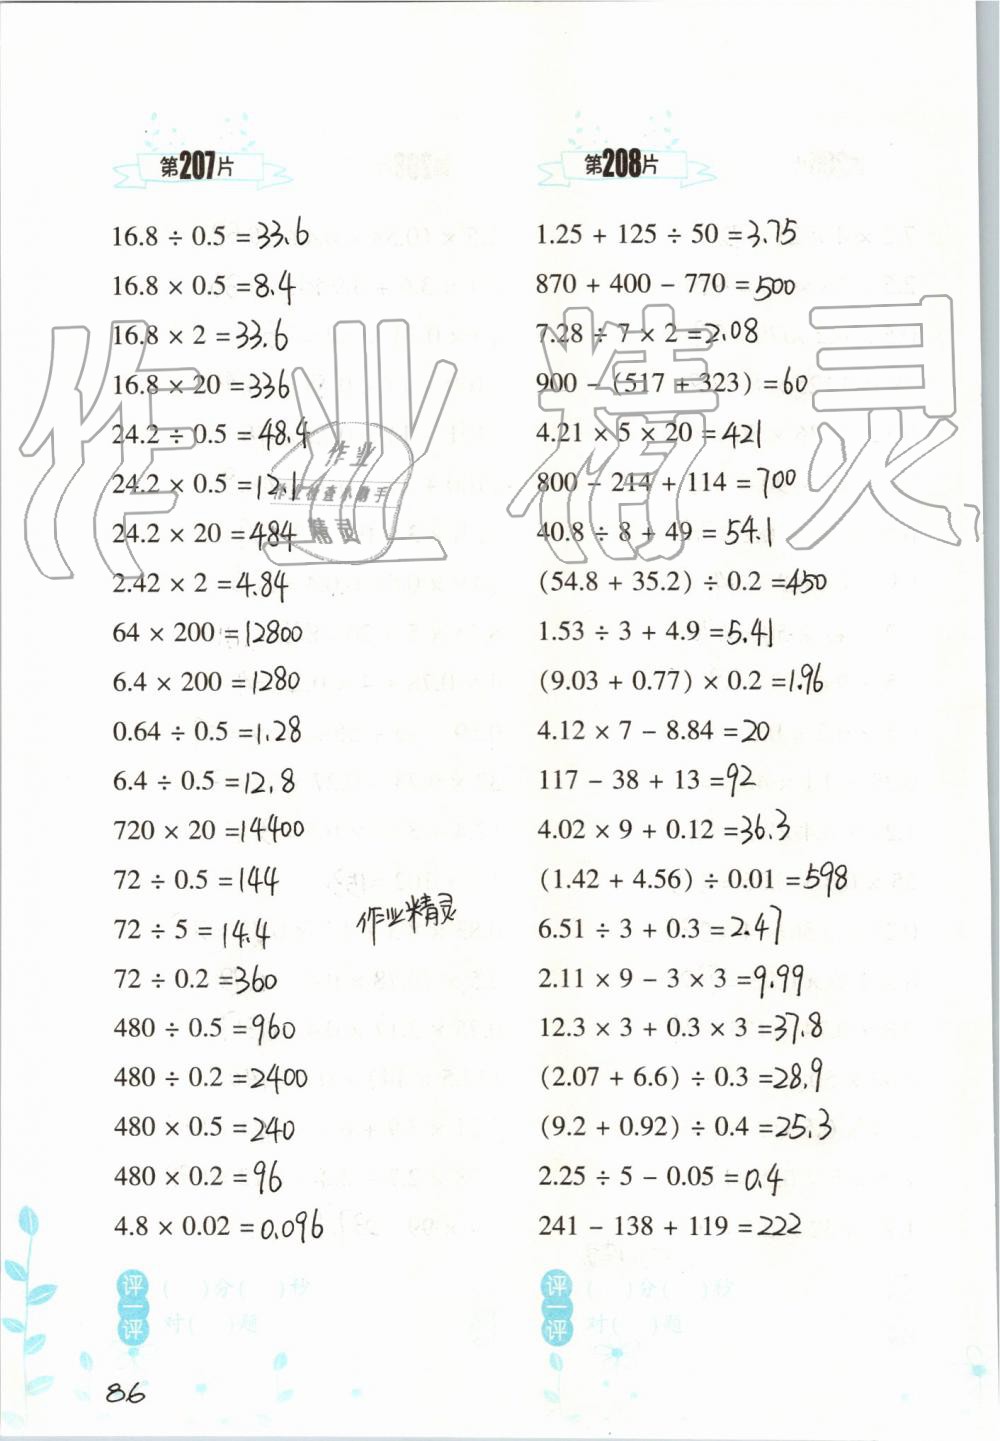 第207片
16.8 ÷ 0.5 = 33.6
16.8 × 0.5 = 8.4
16.8 × 2 = 33.6
16.8 × 20 = 336
24.2 ÷ 0.5 = 48.4
24.2 × 0.5 = 12.1
24.2 × 20 = 484
2.42 × 2 = 4.84
64 × 200 = 12800
6.4 × 200 = 1280
0.64 ÷ 0.5 = 1.28
6.4 ÷ 0.5 = 12.8
720 × 20 = 14400
72 ÷ 0.5 = 144
72 ÷ 5 = 14.4
72 ÷ 0.2 = 360
480 ÷ 0.5 = 960
480 ÷ 0.2 = 2400
480 × 0.5 = 240
480 × 0.2 = 96
4.8 × 0.02 = 0.096
评一评
( )分( )秒
对( )题
作业精灵
作业
作业检查小助手
精灵
作业精灵
第208片
1.25 + 125 ÷ 50 = 3.75
870 + 400 − 770 = 500
7.28 ÷ 7 × 2 = 2.08
900 − (517 + 323) = 60
4.21 × 5 × 20 = 421
800 − 214 + 114 = 700
40.8 ÷ 8 + 49 = 54.1
(54.8 + 35.2) ÷ 0.2 = 450
1.53 ÷ 3 + 4.9 = 5.41
(9.03 + 0.77) × 0.2 = 1.96
4.12 × 7 − 8.84 = 20
117 − 38 + 13 = 92
4.02 × 9 + 0.12 = 36.3
(1.42 + 4.56) ÷ 0.01 = 598
6.51 ÷ 3 + 0.3 = 2.47
2.11 × 9 − 3 × 3 = 9.99
12.3 × 3 + 0.3 × 3 = 37.8
(2.07 + 6.6) ÷ 0.3 = 28.9
(9.2 + 0.92) ÷ 0.4 = 25.3
2.25 ÷ 5 − 0.05 = 0.4
241 − 138 + 119 = 222
评一评
( )分( )秒
对( )题
86